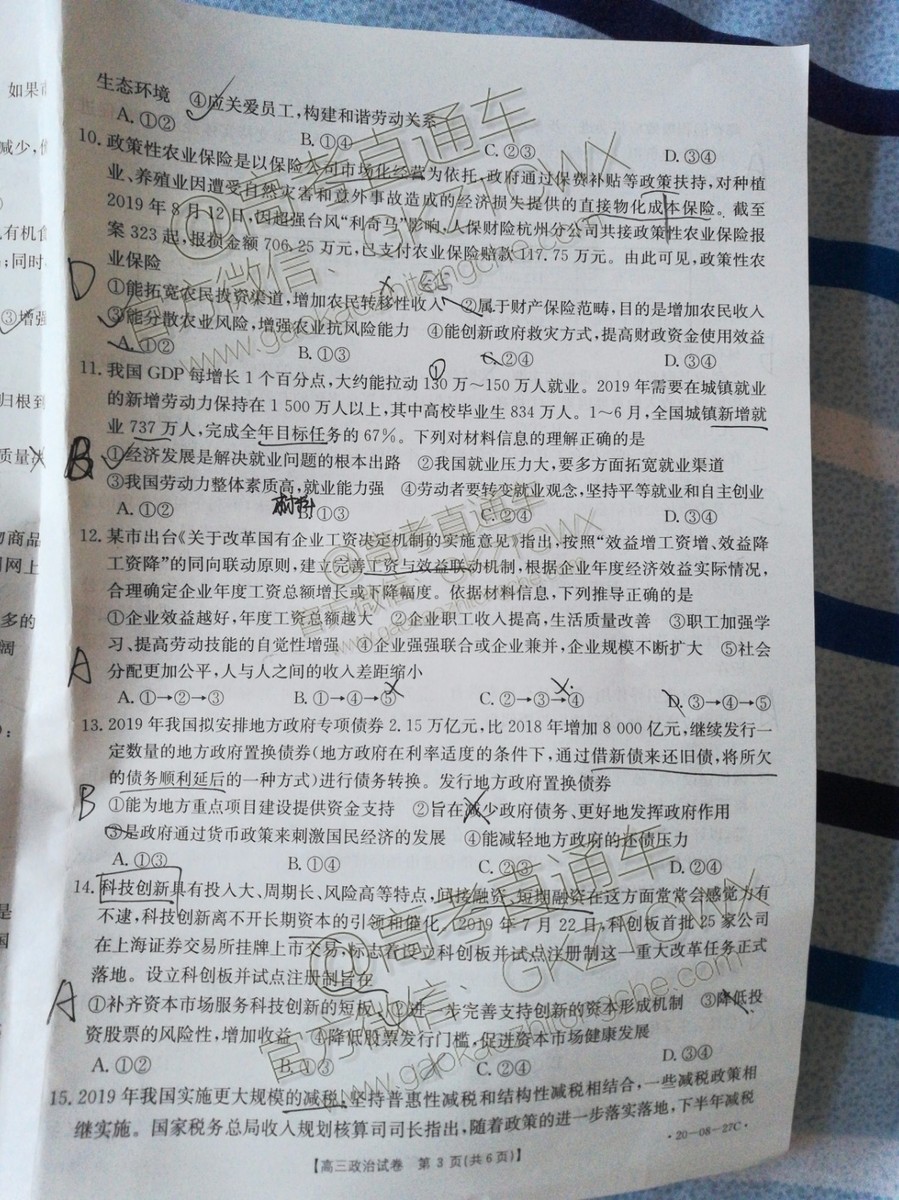 生态环境　④应关爱员工，构建和谐劳动关系
A. ①②　B. ①④　C. ②③　D. ③④
10. 政策性农业保险是以保险公司市场化经营为依托，政府通过保费补贴等政策扶持，对种植
业、养殖业因遭受自然灾害和意外事故造成的经济损失提供的直接物化成本保险。截至
2019年8月12日，因超强台风“利奇马”影响，人保财险杭州分公司共接政策性农业保险报
案323起，报损金额706.25万元，已支付农业保险赔款117.75万元。由此可见，政策性农
业保险
D
①能拓宽农民投资渠道，增加农民转移性收入　②属于财产保险范畴，目的是增加农民收入
③能分散农业风险，增强农业抗风险能力　④能创新政府救灾方式，提高财政资金使用效益
A. ①②　B. ①③　C. ②④　D. ③④
11. 我国GDP每增长1个百分点，大约能拉动130万～150万人就业。2019年需要在城镇就业
的新增劳动力保持在1 500万人以上，其中高校毕业生834万人。1～6月，全国城镇新增就
业737万人，完成全年目标任务的67%。下列对材料信息的理解正确的是
B
①经济发展是解决就业问题的根本出路　②我国就业压力大，要多方面拓宽就业渠道
③我国劳动力整体素质高，就业能力强　④劳动者要转变就业观念，坚持平等就业和自主创业
A. ①②　B. ①③　C. ②④　D. ③④
12. 某市出台《关于改革国有企业工资决定机制的实施意见》指出，按照“效益增工资增、效益降
工资降”的同向联动原则，建立完善工资与效益联动机制，根据企业年度经济效益实际情况，
合理确定企业年度工资总额增长或下降幅度。依据材料信息，下列推导正确的是
①企业效益越好，年度工资总额越大　②企业职工收入提高，生活质量改善　③职工加强学
习、提高劳动技能的自觉性增强　④企业强强联合或企业兼并，企业规模不断扩大　⑤社会
A
分配更加公平，人与人之间的收入差距缩小
A. ①→②→③　B. ①→④→⑤　C. ②→③→④　D. ③→④→⑤
13. 2019年我国拟安排地方政府专项债券2.15万亿元，比2018年增加8 000亿元，继续发行一
定数量的地方政府置换债券(地方政府在利率适度的条件下，通过借新债来还旧债，将所欠
的债务顺利延后的一种方式)进行债务转换。发行地方政府置换债券
B
①能为地方重点项目建设提供资金支持　②旨在减少政府债务、更好地发挥政府作用
③是政府通过货币政策来刺激国民经济的发展　④能减轻地方政府的还债压力
A. ①③　B. ①④　C. ②③　D. ②④
14. 科技创新具有投入大、周期长、风险高等特点，间接融资、短期融资在这方面常常会感觉力有
不逮，科技创新离不开长期资本的引领和催化。2019年7月22日，科创板首批25家公司
在上海证券交易所挂牌上市交易，标志着设立科创板并试点注册制这一重大改革任务正式
落地。设立科创板并试点注册制旨在
A
①补齐资本市场服务科技创新的短板　②进一步完善支持创新的资本形成机制　③降低投
资股票的风险性，增加收益　④降低股票发行门槛，促进资本市场健康发展
A. ①②　B. ①③　C. ②④　D. ③④
15. 2019年我国实施更大规模的减税，坚持普惠性减税和结构性减税相结合，一些减税政策相
继实施。国家税务总局收入规划核算司司长指出，随着政策的进一步落实落地，下半年减税
【高三政治试卷　第3页(共6页)】
·20-08-27C·
@高考直通车
官方微信：GKZTCWX
www.gaokaozhitongche.com
@高考直通车
官方微信：GKZTCWX
www.gaokaozhitongche.com
@高考直通车
官方微信：GKZTCWX
www.gaokaozhitongche.com